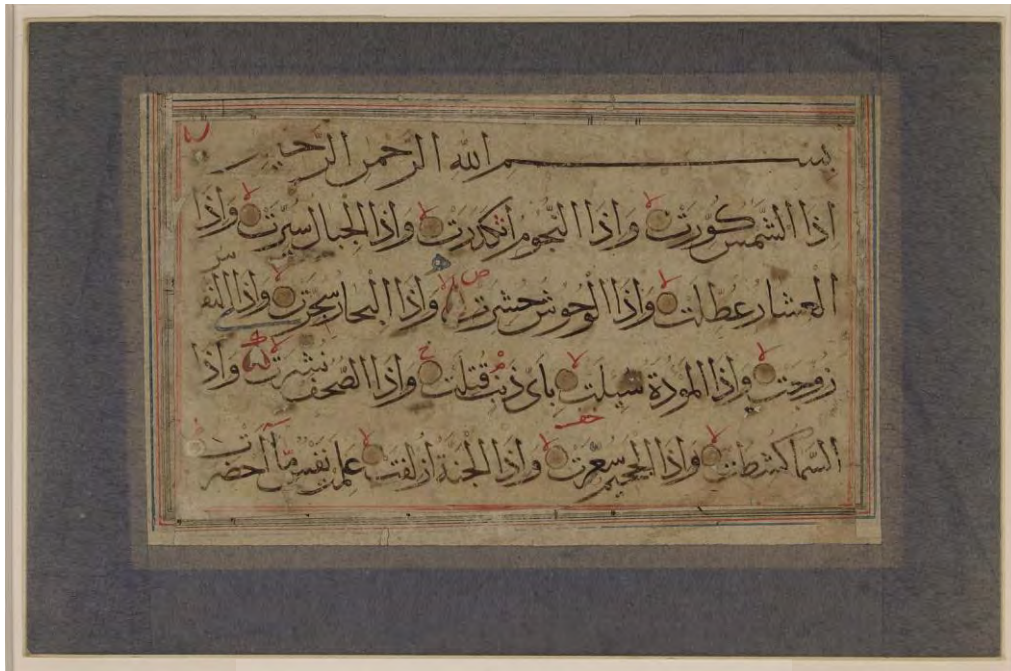 بسم الله الرحمن الرحيم
اذا الشمس كورت واذا النجوم انكدرت واذا الجبال سيرت واذا
العشار عطلت واذا الوحوش حشرت واذا البحار سجرت واذا النفو
زوجت واذا الموٓدة سيلت باى ذنب قتلت واذا الصحف نشرت واذا
السما كشطت واذا الجحيم سعرت واذا الجنة ازلفت علمت نفس ما احضرت